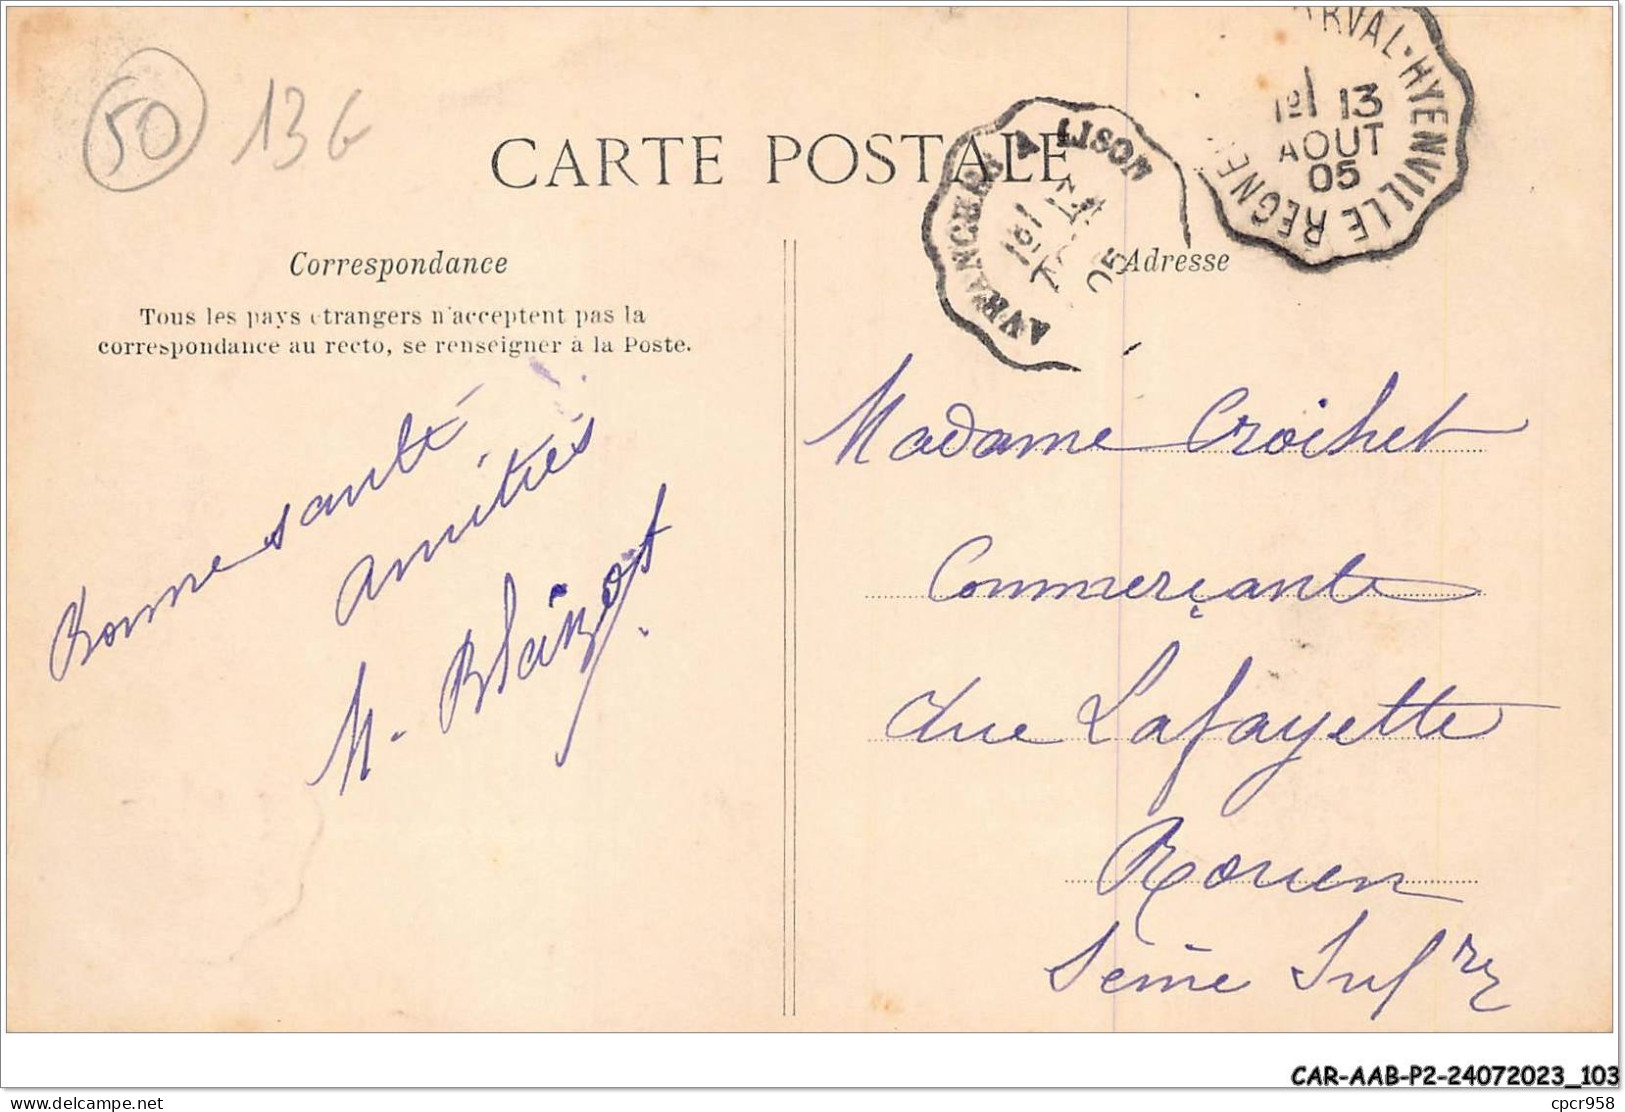 50
13G
CARTE POSTALE
RVAL-HYENVILLE REGNE
1º/ 13
AOUT
05
AVRANCHES A LISON
05
Correspondance
Tous les pays étrangers n'acceptent pas la
correspondance au recto, se renseigner à la Poste.
Bonne santé
amitiés
M. Blaizot
Adresse
Madame Croihet
Commerçante
rue Lafayette
Rouen
Seine Infre
CAR-AAB-P2-24072023_103
delcampe.net
cpcr958